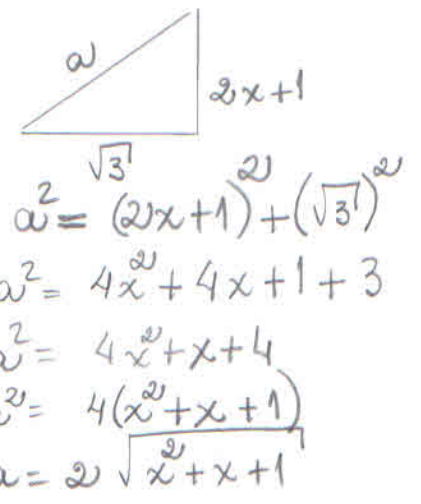 a
2x+1
√3
a² = (2x+1)² + (√3)²
a² = 4x² + 4x + 1 + 3
a² = 4x² + x + 4
a² = 4(x² + x + 1)
a = 2 √x² + x + 1